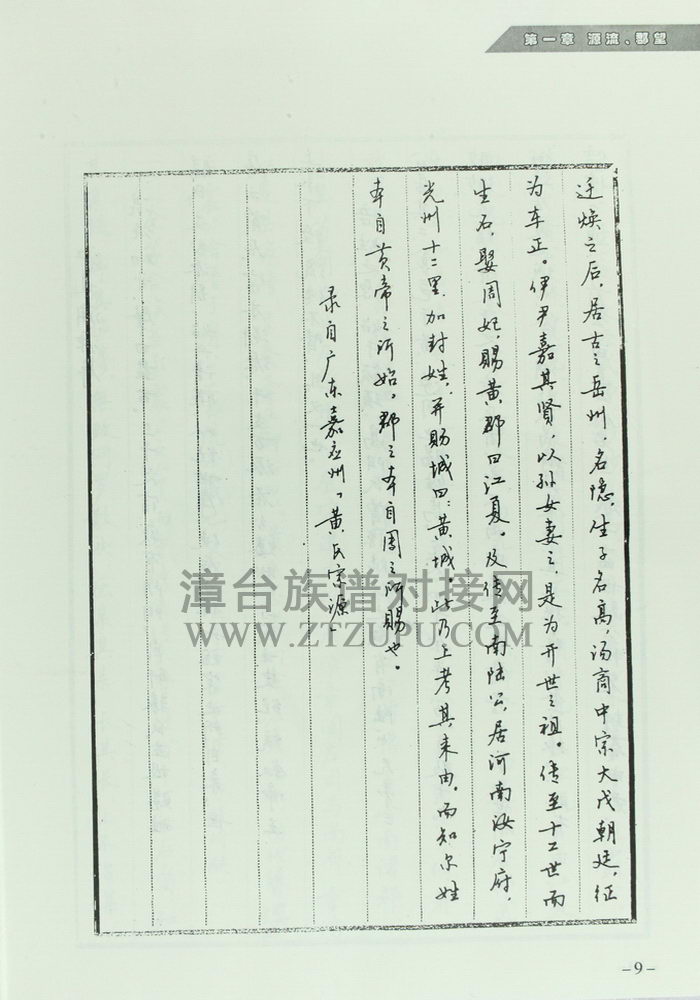 第一章 源流、郡望
迁焕之后，居古之岳州，名隐，生子名高，汤商中宗大戊朝廷，征
为车正。伊尹嘉其贤，以孙女妻之，是为开世之祖。传至十二世而
生石，娶周妃，赐黄郡曰江夏。及传至南陆公，居河南汝宁府，
光州十二里，加封姓，并赐城曰：黄城。此乃上考其来由，而知尔姓
本自黄帝之所始，郡之本自周之所赐也。
录自广东嘉应州「黄氏宗源」
漳台族谱对接网
WWW.ZTZUPU.COM
－9－